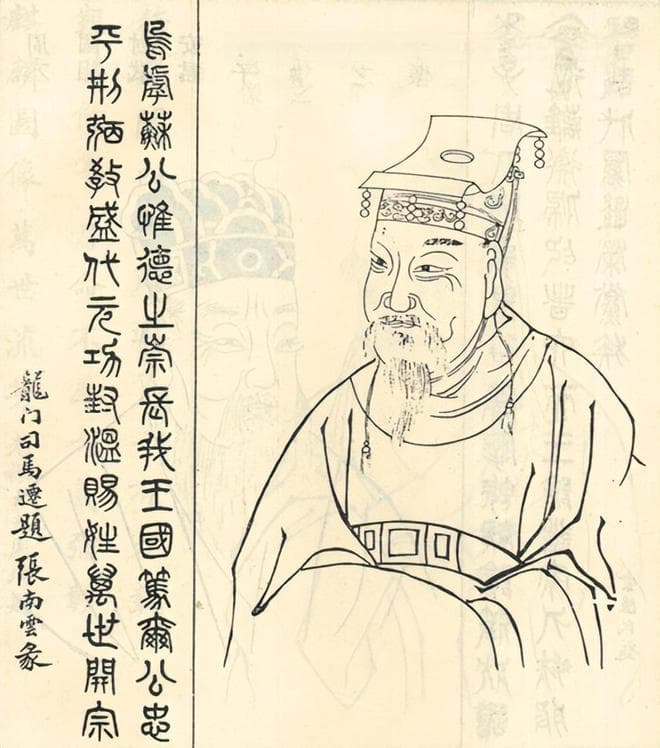 烏虖蘇公惟德之崇長我王國篤爾公忠
平刑弼教盛代元功封溫賜姓萬世開宗
龍门司馬遷題 張南雲彖